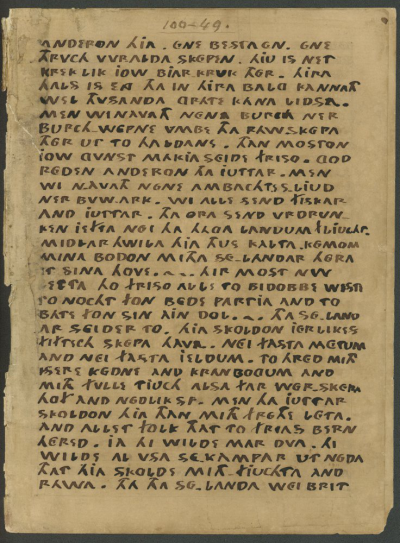 100-49.
ANDERON HIA. ENE BESTA EN. ENE
THRVCH WRALDA SKEPEN. HIU IS NET
KREK LIK IOW BIAR KRUK THER. HIRA
HALS IS
WEL THUSANDA GRATE KANA LIDSA.
MEN WI NAVATH NENE BURCH NER
BURCH WEPNE VMBE THA RAW SKEPA
THER UT TO HALDANE. THAN MOSTON
IOW GVNST MAKIA SEIDE FRISO. GOD
REDEN ANDERON THA IUTTAR. MEN
WI NAVATH NENE AMBACHTIS LIUD
NER BUWARK. WI ALLE SEND FISKAR
AND IUTTAR. THA ORA SEND VRDRUN-
KEN IEFTHA NEI THA HAGA LANDUM FLIUCHT.
MIDLAR HWILA HIA THUS KALTA. KEMON
MINA BODON MITH SE-LANDAR HERA
ET SINA HOVE. ~. HIR MOST NW
LETTA HO FRISO ALLE TO BIDOBBE WISTE
TO NOCHT FON BEDE PARTIA AND TO
BATE FON SIN AIN DOL. ~. THA SE-LAND
AR SEIDER TO. HIA SKOLDON IERLIKES
FIFTICH SKEPA HAVA. NEI FASTA METUM
AND NEI FASTA IELDUM. TO HRED MITH
ISERE KEDNE AND KRANBOGUM AND
MITH FULLE TIUCH ALSA FAR WER-SKEPA
HOF AND NEDLIK SI. MEN THA IUTTAR
SKOLDON HIA THAN MITH FRETHE LETA.
AND ALLET FOLK THAT TO FRIAS BERN
HERED. IA HI WILDE MAR DVA. HI
WILDE AL VSA SE-KAMPAR UT NEDA
THAT HIA SKOLDE MITH FIUCHTA AND
RAWA. THA THA SE-LANDA WEI BRIT